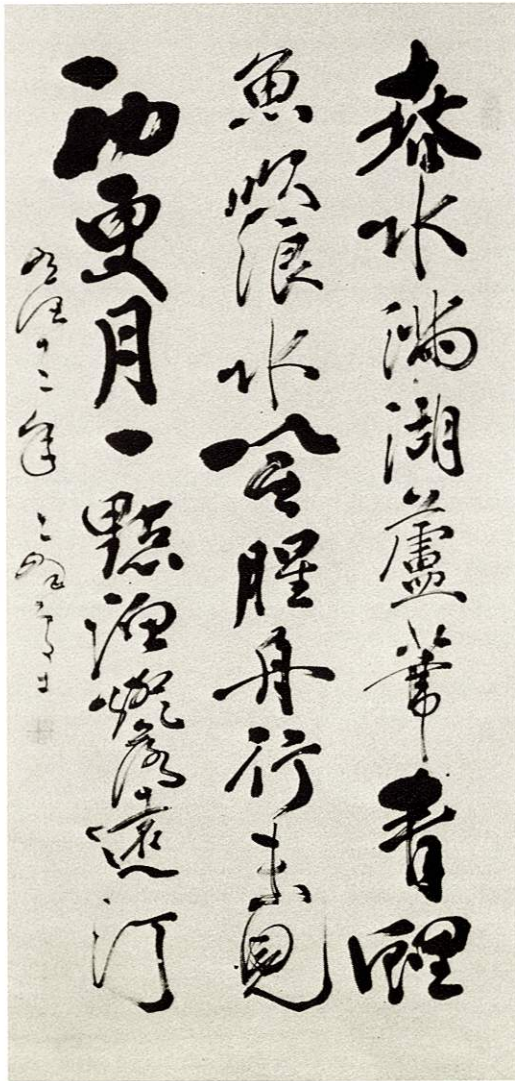 春水滿湖蘆葦青鯉
魚吹浪水風腥舟行未見
初更月一點漁燈落遠汀
治十二年